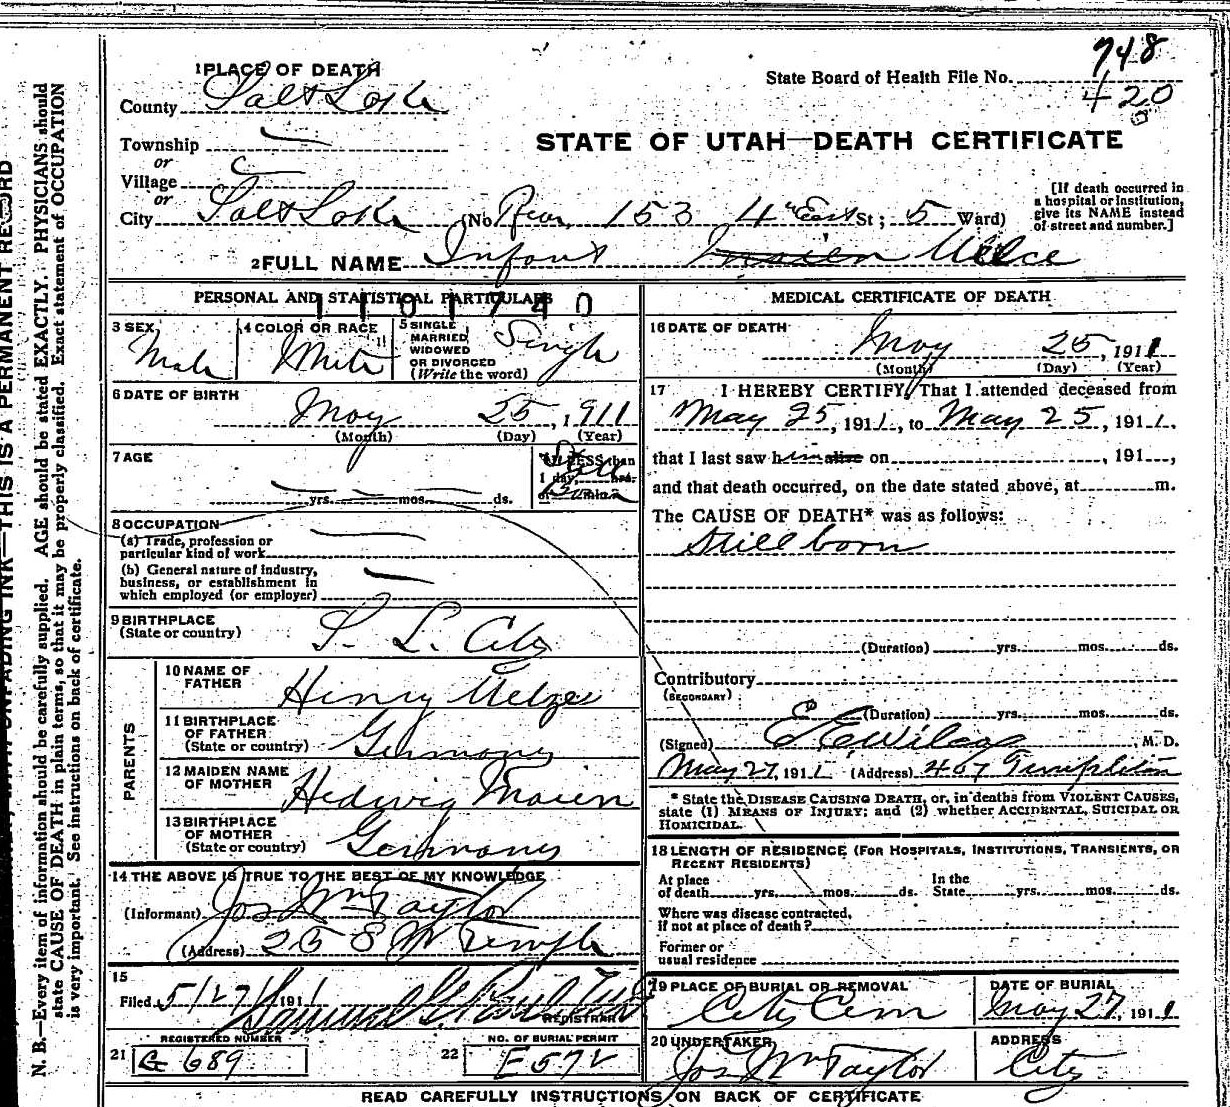 748
State Board of Health File No. 420
1 PLACE OF DEATH
County Salt Lake
STATE OF UTAH—DEATH CERTIFICATE
Township —
or
Village
or
City Salt Lake (No. Rear 153 4th East St; 5 Ward)
[If death occurred in
a hospital or institution,
give its NAME instead
of street and number.]
2 FULL NAME Infant
PERSONAL AND STATISTICAL PARTICULARS
1101740
3 SEX
Male
4 COLOR OR RACE
White
5 SINGLE
MARRIED,
WIDOWED
OR DIVORCED
(Write the word)
Single
6 DATE OF BIRTH
May 25, 1911
(Month) (Day) (Year)
7 AGE
— yrs. — mos. — ds.
If LESS than
1 day, hrs.
or min.?
Still
Born
8 OCCUPATION
(a) Trade, profession or
particular kind of work —
(b) General nature of industry,
business, or establishment in
which employed (or employer) —
9 BIRTHPLACE
(State or country) S. L. City
PARENTS
10 NAME OF
FATHER Henry
11 BIRTHPLACE
OF FATHER
(State or country) Germany
12 MAIDEN NAME
OF MOTHER Hedwig Maien
13 BIRTHPLACE
OF MOTHER
(State or country) Germany
14 THE ABOVE IS TRUE TO THE BEST OF MY KNOWLEDGE
(Informant) Jos Wm Taylor
(Address) 25 S W Temple
15
Filed 5/27/1911 Samuel G. Paul
REGISTRAR
REGISTERED NUMBER
21 G 689
NO. OF BURIAL PERMIT
22 E 572
MEDICAL CERTIFICATE OF DEATH
16 DATE OF DEATH
May 25, 1911
(Month) (Day) (Year)
17 I HEREBY CERTIFY, That I attended deceased from
May 25, 1911, to May 25, 1911,
that I last saw him alive on , 191 ,
and that death occurred, on the date stated above, at m.
The CAUSE OF DEATH* was as follows:
Still born
(Duration) yrs. mos. ds.
Contributory
(SECONDARY)
(Duration) yrs. mos. ds.
(Signed) E E Wilcox, M. D.
May 27, 1911 (Address) 407 Templeton
* State the DISEASE CAUSING DEATH, or, in deaths from VIOLENT CAUSES,
state (1) MEANS OF INJURY; and (2) whether ACCIDENTAL, SUICIDAL OR
HOMICIDAL.
18 LENGTH OF RESIDENCE (FOR HOSPITALS, INSTITUTIONS, TRANSIENTS, OR
RECENT RESIDENTS)
At place
of death yrs. mos. ds.
In the
State yrs. mos. ds.
Where was disease contracted,
if not at place of death?
Former or
usual residence
19 PLACE OF BURIAL OR REMOVAL
City Cem
DATE OF BURIAL
May 27, 1911
20 UNDERTAKER
Jos Wm Taylor
ADDRESS
City
READ CAREFULLY INSTRUCTIONS ON BACK OF CERTIFICATE
UNFADING INK—THIS IS A PERMANENT RECORD
N. B.—Every item of information should be carefully supplied. AGE should be stated EXACTLY. PHYSICIANS should
state CAUSE OF DEATH in plain terms, so that it may be properly classified. Exact statement of OCCUPATION
is very important. See instructions on back of certificate.